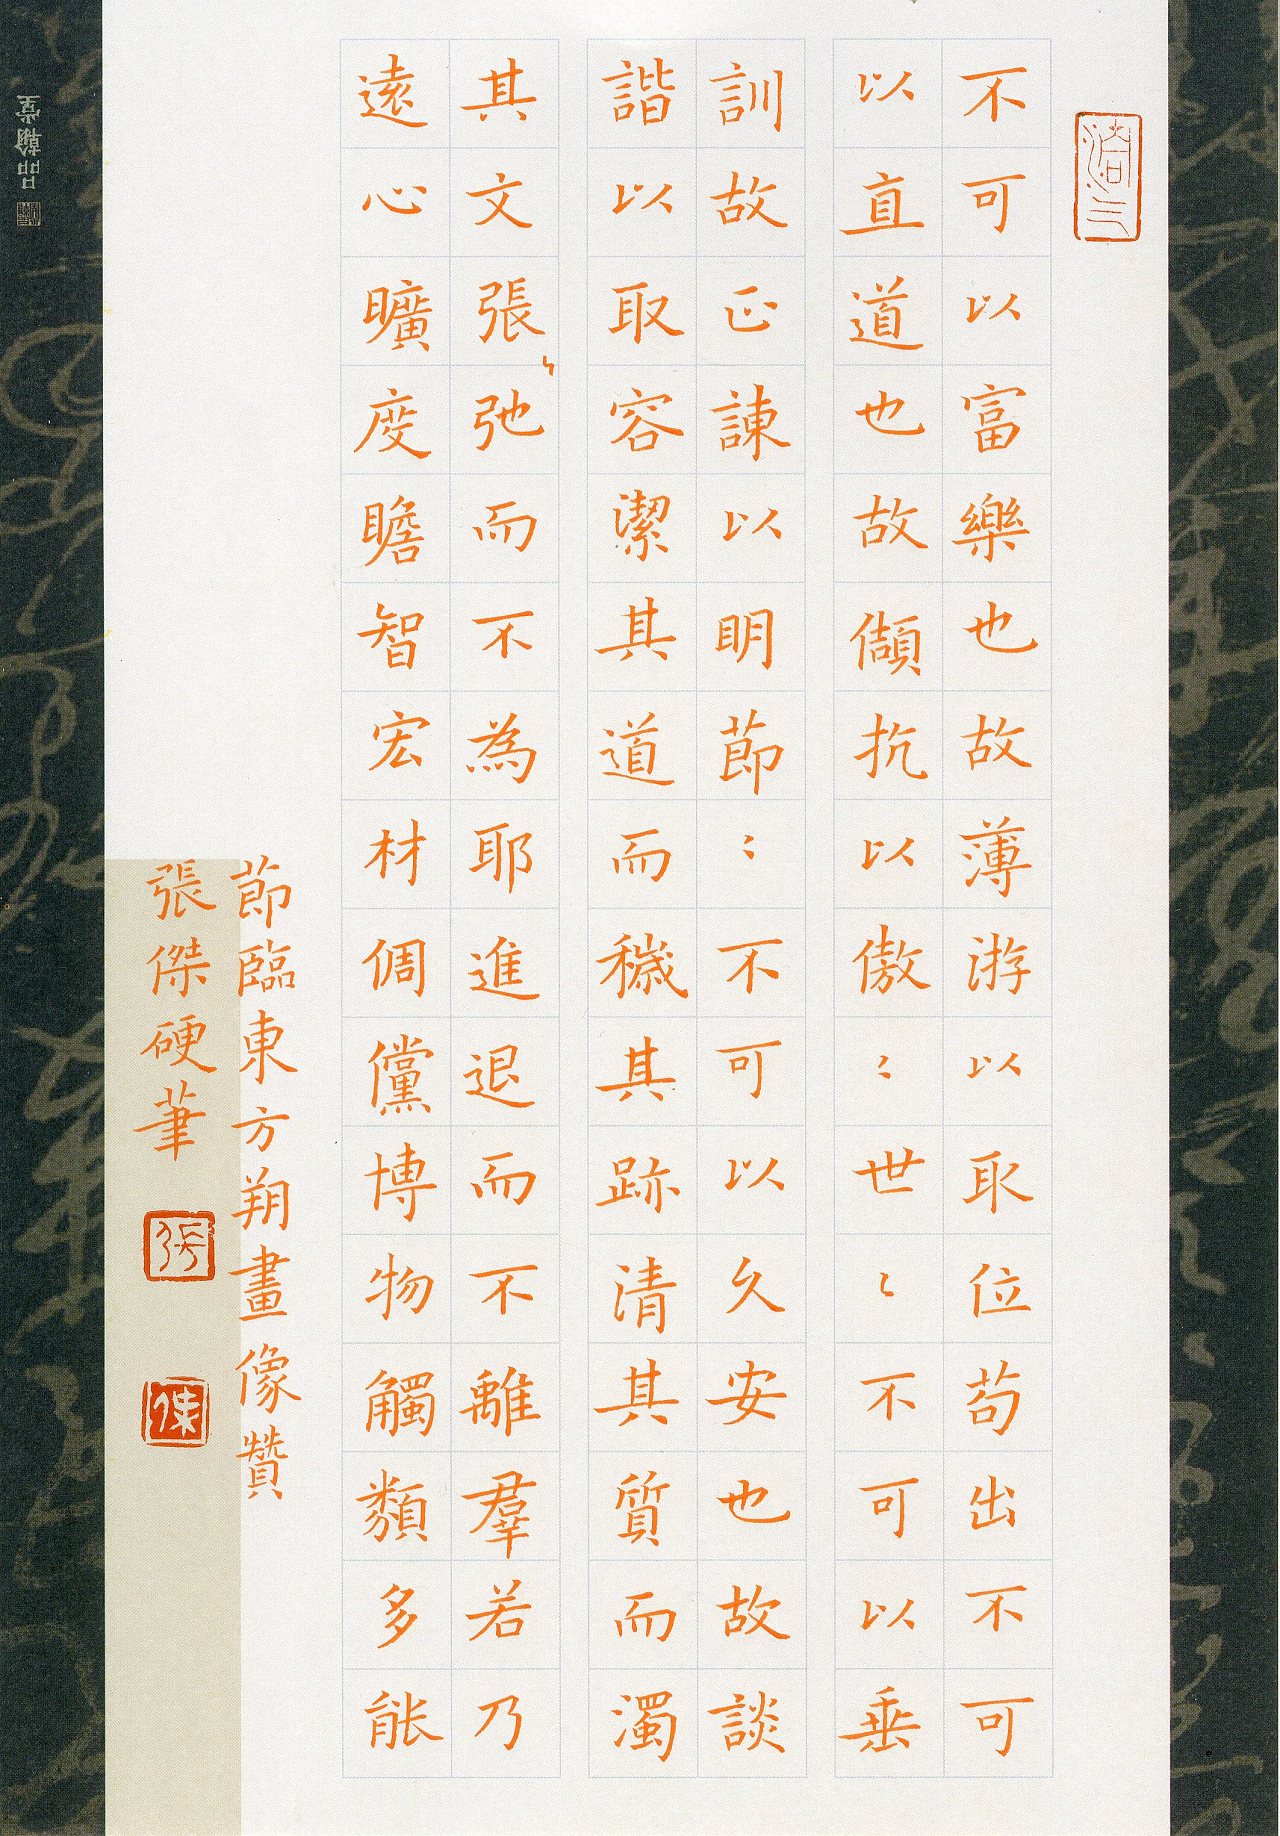 不可以富樂也故薄游以取位苟出不可
以直道也故頡抗以傲〻世〻不可以垂
訓故正諫以明節〻不可以久安也故談
諧以取容潔其道而穢其跡清其質而濁
其文張弛而不為耶進退而不離羣若乃
遠心曠度瞻智宏材倜儻博物觸類多能
節臨東方朔畫像贊
張傑硬筆
張
品翰堂